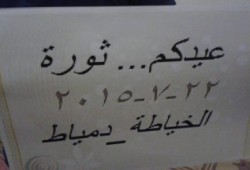 عيدكم... ثورة
٢٠١٥-٧-٢٢
الخياطة_دمياط